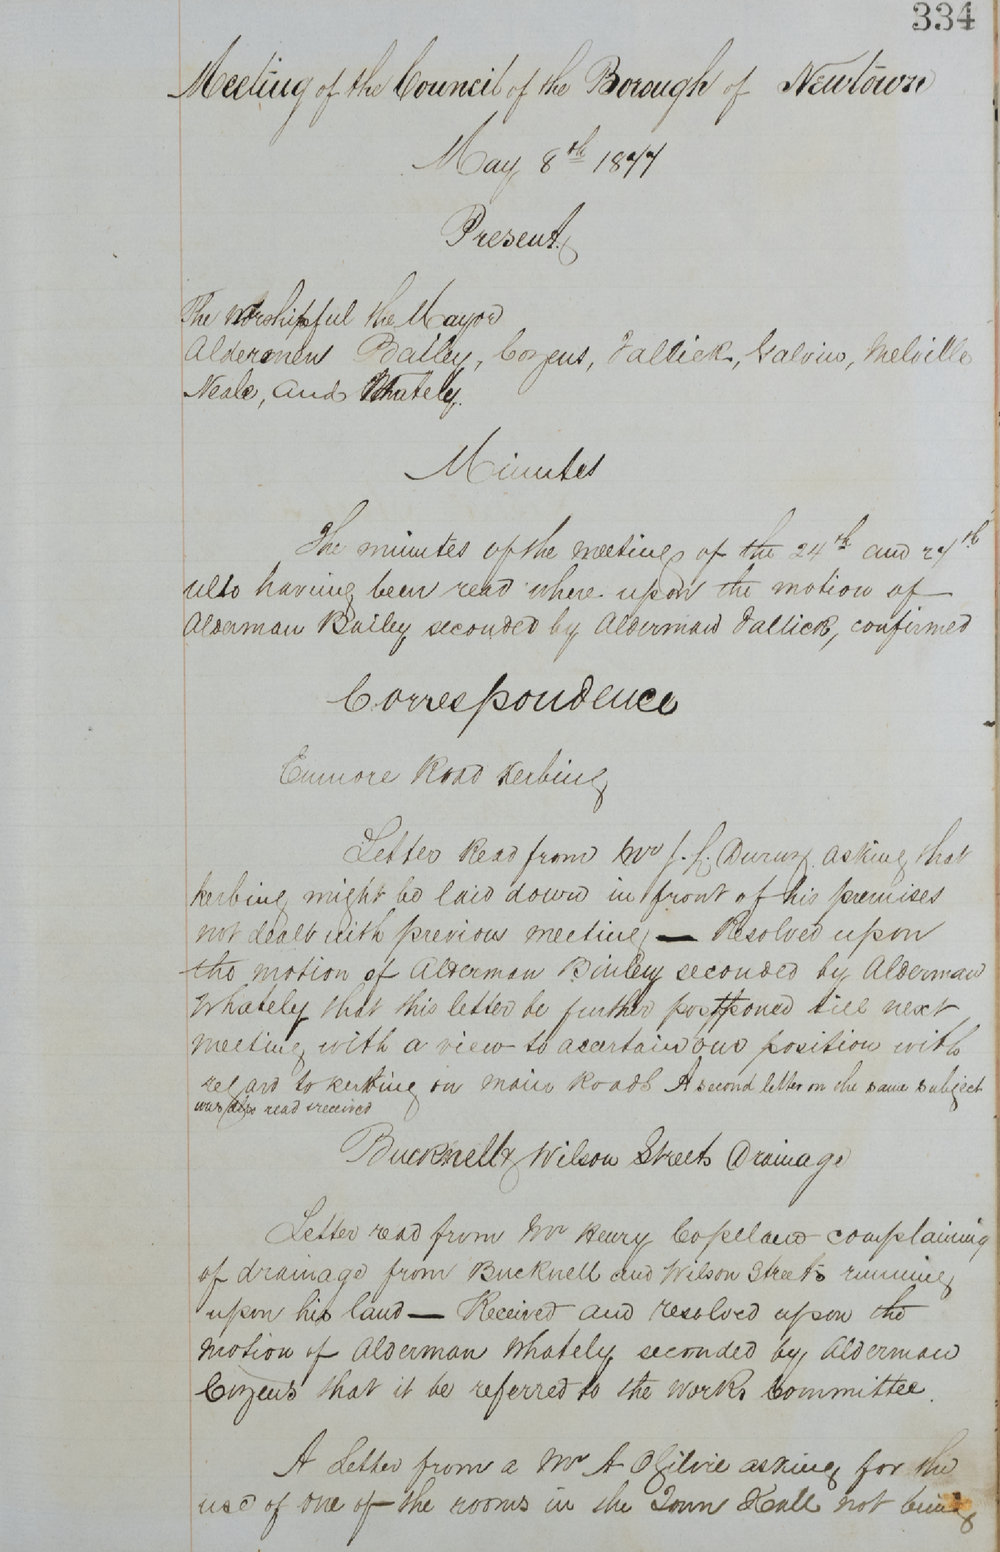 334
Meeting of the Council of the Borough of Newtown
May 8th 1877
Present
The Worshipful the Mayor
Aldermen Bailey, Cozens, Fallick, Galvin, Melville
Neale, and Whately.
Minutes
The minutes of the meetings of the 24th and 27th
ulto having been read where upon the motion of
Alderman Bailey seconded by Alderman Fallick, confirmed
Correspondence
Enmore Road Kerbing
Letter Read from Mr J. asking that
kerbing might be laid down in front of his premises
not dealt with previous meeting — Resolved upon
the motion of Alderman Bailey seconded by Alderman
Whately that this letter be further postponed till next
meeting with a view to ascertain our position with
regard to kerbing on main Roads A second letter on the same subject
was also read & received
Bucknell & Wilson Streets Drainage
Letter read from Mr Henry Copeland complaining
of drainage from Bucknell and Wilson Streets running
upon his land — Received and resolved upon the
motion of Alderman Whately seconded by Alderman
Cozens that it be referred to the Works Committee.
A Letter from a Mr A Ogilvie asking for the
use of one of the rooms in the Town Hall not being